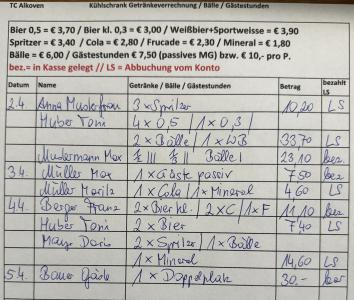 TC Alkoven Kühlschrank Getränkeverrechnung / Bälle / Gästestunden
Bier 0,5 = € 3,70 / Bier kl. 0,3 = € 3,00 / Weißbier+Sportweisse = € 3,90
Spritzer = € 3,40 / Cola = € 2,80 / Frucade = € 2,30 / Mineral = € 1,80
Bälle = € 6,00 / Gästestunden € 7,50 (passives MG) bzw. € 10,- pro P.
bez.= in Kasse gelegt // LS = Abbuchung vom Konto
Datum Name Getränke / Bälle / Gästestunden Betrag bezahlt LS
2.4. Anna Musterfrau 3 x Spritzer 10,20 LS
Huber Toni 4 x 0,5 / 1 x 0,3 /
2 x Bälle / 1 x WB 33,70 LS
Mustermann Max Bälle 1 23,10 bez.
3.4. Müller Max 1 x Gäste passiv 7,50 bez.
Müller Moritz 1 x Cola / 1 x Mineral 4,60 LS
4.4. Berger Franz 2 x Bier kl. / 2 x C / 1 x F 11,10 bez.
Huber Toni 2 x Bier 7,40 LS
Mayr Doris 2 x Spritzer / 1 x Bälle
1 x Mineral 14,60 LS
5.4. Bauer Gäste 1 x Doppelplatz 30,- bez.